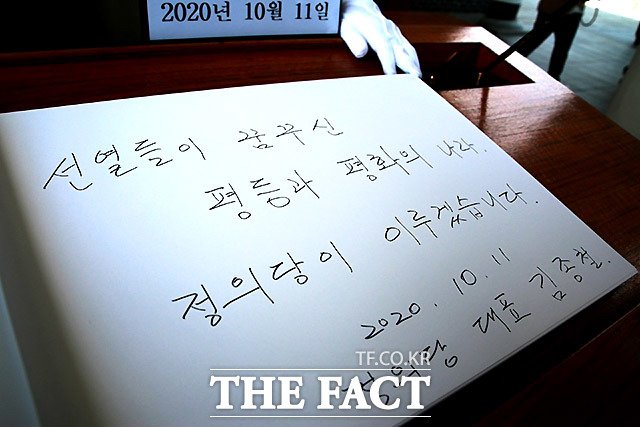 2020년 10월 11일
선열들이 꿈꾸신
평등과 평화의 나라.
정의당이 이루겠습니다.
2020. 10. 11
정의당 대표 김종철.
TF.CO.KR
THE FACT